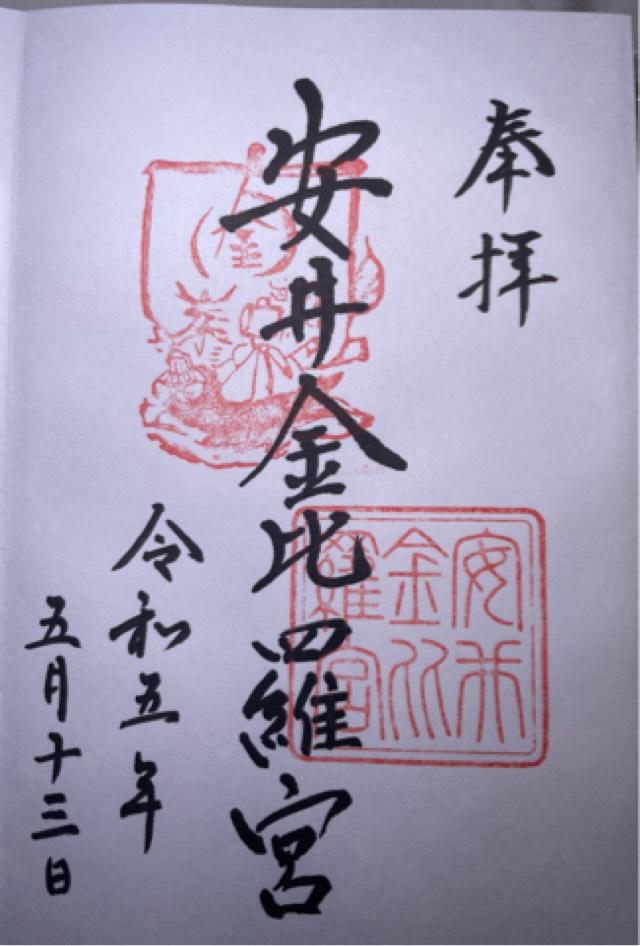 奉拝
安井金比羅宮
令和五年
五月十三日
安井
金比
羅宮
金